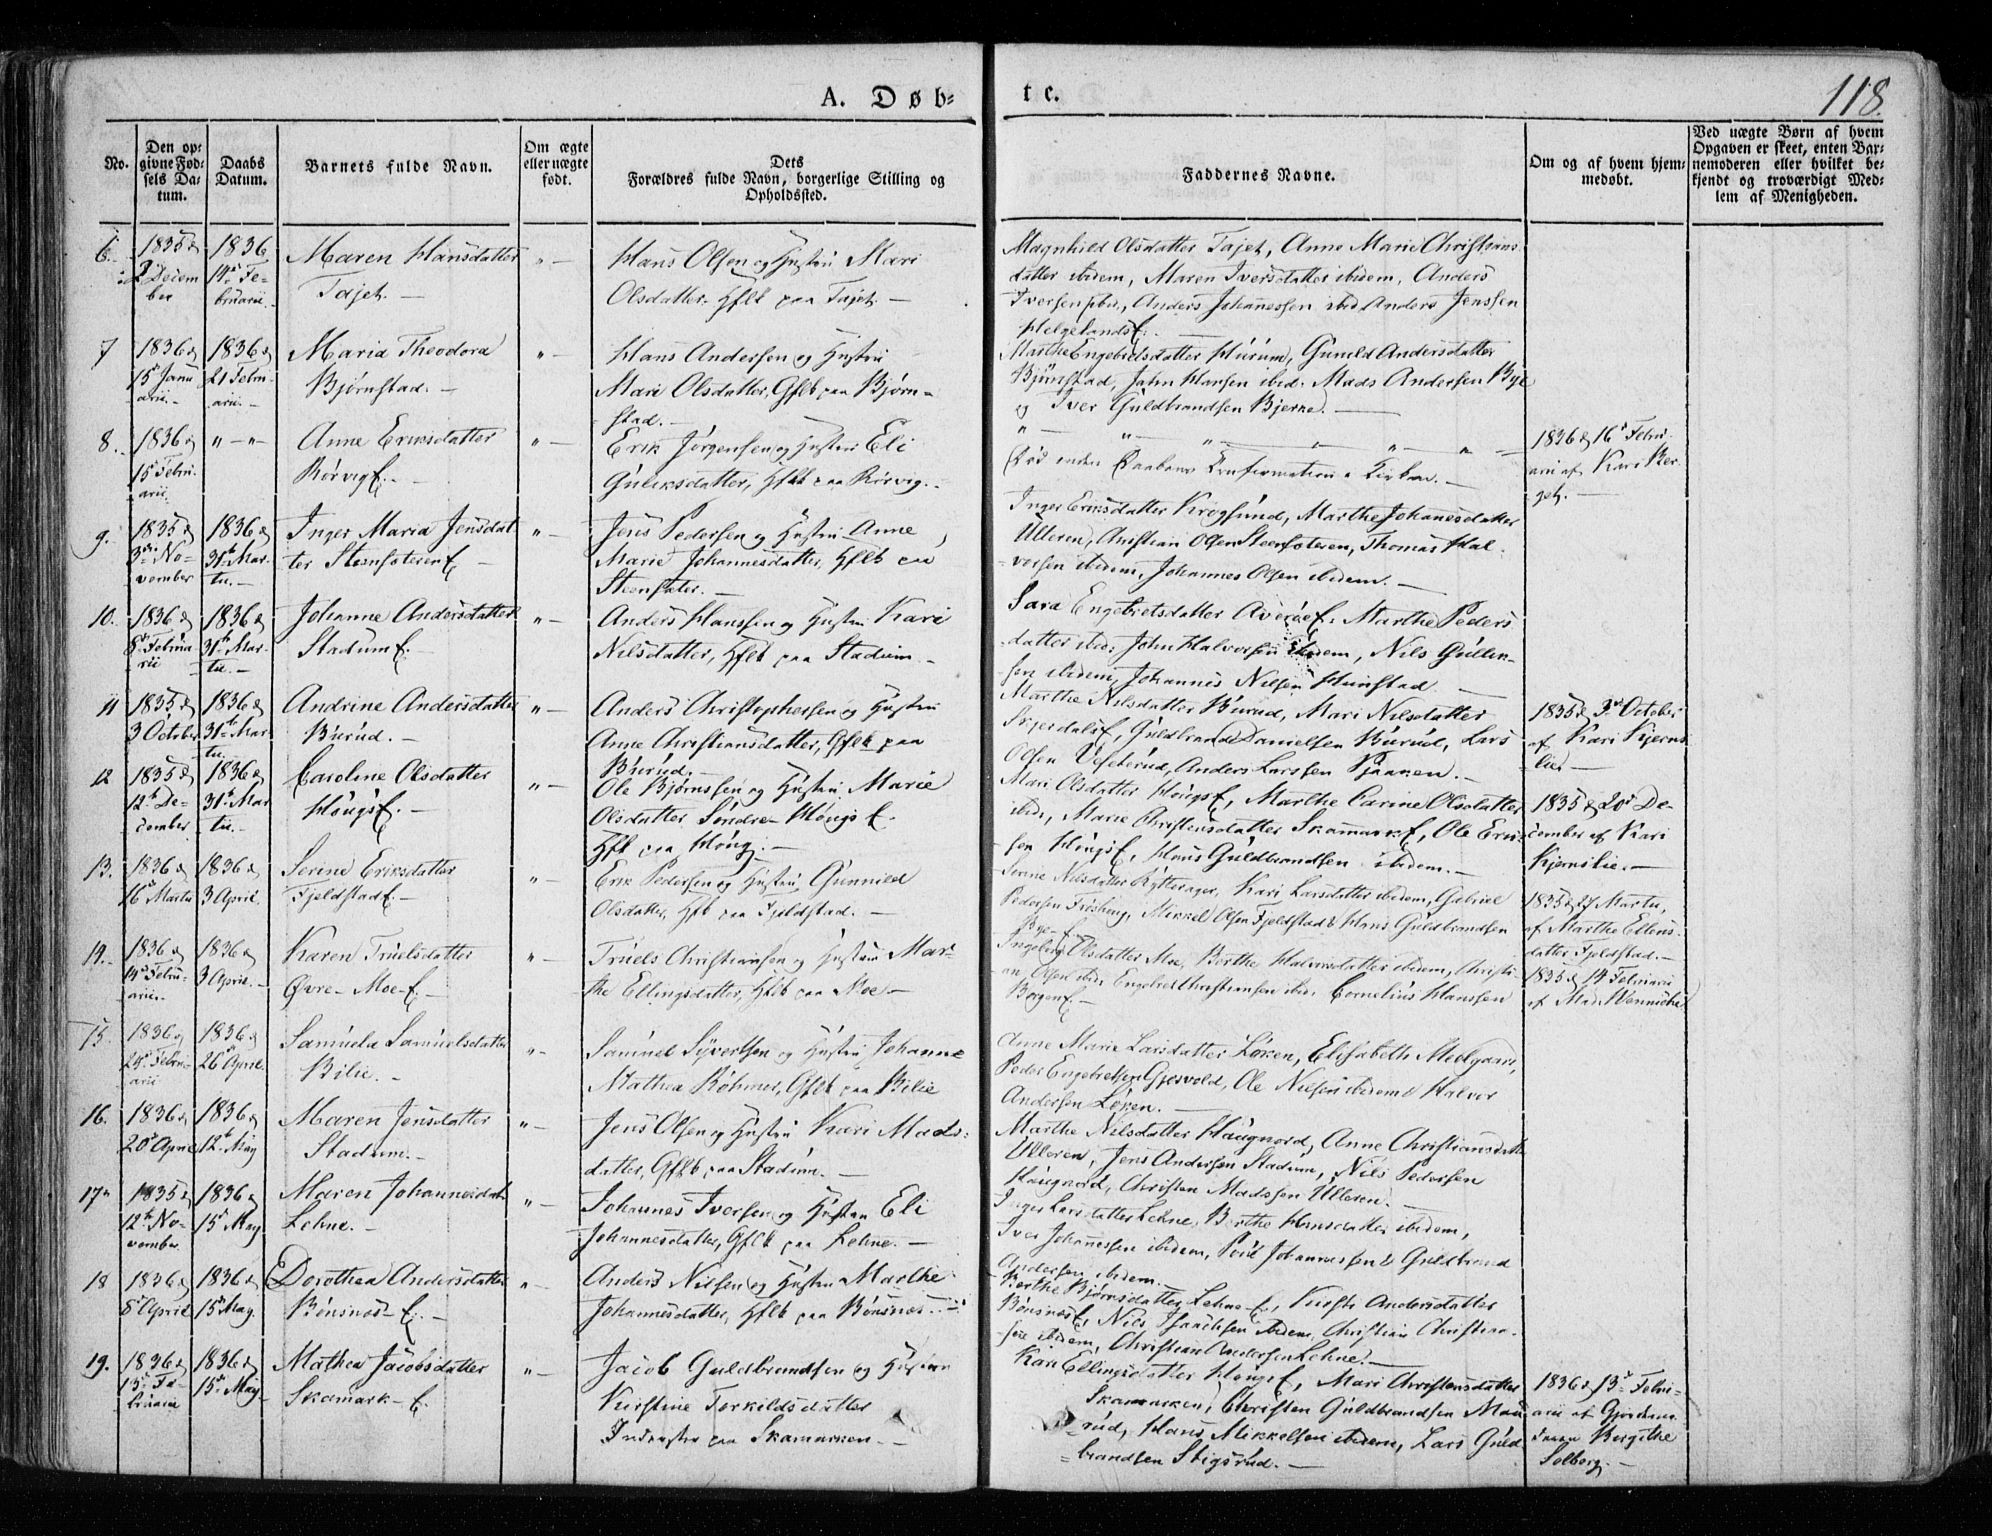 A. Døb-
te.
118.
No.
Den op-
givne Fød-
sels Da-
tum.
Daabs
Datum.
Barnets fulde Navn.
Om ægte
eller uægte
født.
Dets
Forældres fulde Navn, borgerlige Stilling og
Opholdssted.
Faddernes Navne.
Om og af hvem hjem-
medøbt.
Ved uægte Børn af hvem
Opgaven er skeet, enten Bar-
nemoderen eller hvilket be-
kjendt og troværdigt Med-
lem af Menigheden.
6.
1835
2 Decem
ber
1836
14 Fe-
bruarii
Maren Hansdatter
Tajet.
Hans Olsen og Hustru Mari
Olsdatter. Hflk paa Tajet
Magnhild Olsdatter Tajet, Anne Marie Christians
datter ibidem, Maren Iversdatter ibidem, Anders
Iversen ibid., Anders Johanessen ibid Anders Jenssen
Helgelands
7
1836
15 Janu
arii
1836
21 Febru-
arii
Maria Theodora
Bjørnstad.
Hans Andersen og Hustru
Mari Olsdatter, Gflk paa Bjørn-
stad.
Marthe Engebretsdatter Hurum, Gunild Andersdatter
Bjørnstad, Jahn Hansen ibid. Mads Andersen Bye
og Iver Guldbrandsen Bjerke.
8.
1836
15 Febru-
arii
" - " -
Anne Eriksdatter
Rørvig
Erik Jørgensen og Hustru Eli
Guliksdatter, Hflk paa Rørvig.
Daabens Confirmation i Kirken.
1836 16 Febru-
arii af Kari Ber-
get.
9.
1835
3 No-
vember
1836
31 Mar-
tii
Inger Maria Jensdat
ter Steensæteren
Jens Pedersen og Hustru Anne
Marie Johannesdatter, Hflk paa
Steensæter.
Inger Eriksdatter Krogsund, Marthe Johanesdatter
Ulleren, Christian Olsen Steensæteren, Thomas Hal-
vorsen ibidem, Johannes Olsen ibidem.
10.
1836
8 Februa
rii
1836
31 Mar-
tii
Johanne Andersdatter
Stadum
Anders Hanssen og Hustru Kari
Nilsdatter, Hflk paa Stadum
Sara Engebretsdatter Averøe, Marthe Peders
datter ibid. John Halvorsen ibidem, Nils Gullik-
sen ibidem, Johannes Nilsen Hunstad
11
1835
3 October
1836
31 Mar
tii
Andrine Andersdatter
Burud.
Anders Christophersen og Hustru
Anne Christiansdatter, Gflk paa
Burud.
Marthe Nilsdatter Burud, Mari Nilsdatter
Skjerdals, Guldbrand Danielsen Burud, Lars
Olsen Vesterud, Anders Larssen Pjaaken.
1835 3 October
af Kari Kjerns
lie
12
1835
12 De-
cember
1836
31 Mar
tii
Caroline Olsdatter
Høugs
Ole Bjørnssen og Hustru Marie
Olsdatter Søndre Høugs
Hflk paa Høug.
Mari Olsdatter Høugs, Marthe Carine Olsdatter
ibid., Marie Christensdatter Skamark, Ole Erik-
sen Høugs, Hans Guldbrandsen ibidem.
1835 20 De-
cember af Kari
Kjernslie.
13.
1836
16 Martii
1836
3 April
Serine Eriksdatter
Fjeldstad
Erik Pedersen og Hustru Gunnild
Olsdatter, Hflk paa Fjeldstad.
Serine Nilsdatter Rytterager, Kari Larsdatter ibidem, Gabriel
Pedersen Frøshoug, Mikkel Olsen Fjeldstad & Hans Guldbrandsen
Bye
1835 27 Martii,
af Marthe Ellens
datter Fjeldstad.
14.
1836
14 Febru-
arii
1836
3 April.
Karen Truelsdatter
Øvre-Moe
Truels Christiansen og Hustru Mar-
the Ellingsdatter, Hflk paa Moe
Ingeborg Olsdatter Moe, Berthe Halvorsdatter ibidem, Christi-
an Olsen ibid. Engebret Christiansen ibid. Cornelius Hanssen
Borgen
1835 14 Februarii
af Mad. Wenniche
15.
1836
24 Febru-
arii
1836
26 April
Samuela Samuelsdatter
Bilie.
Samuel Syvertsen og Hustru Johanne
Mathea Bøhmer, Gflk paa Bilie
Anne Marie Larsdatter Løken, Elisabeth Moelgaard,
Peder Engebretsen Gjesvold, Ole Nielsen ibidem & Halvor
Andersen Løken.
16.
1836
20 April
1836
12 May
Maren Jensdatter
Stadum.
Jens Olsen og Hustru Kari Mads-
datter, Gflk paa Stadum.
Marthe Nilsdatter Haugnord, Anne Christiansdatter
Ulleren, Jens Andersen Stadum, Nils Pedersen
Haugnord, Christen Madssen Ulleren.
17
1835
12 No-
vember
1836
15 May
Maren Johannesdat
Lehne.
Johannes Iversen og Hustru Eli
Johannesdatter, Gflk paa Lehne.
Inger Larsdatter Lehne, Berthe Hansdatter ibidem,
Iver Johannessen ibidem, Poul Johannessen & Guldbrand
Andersen ibidem.
18
1836
8 April
1836
15 May.
Dorothea Andersdatter
Bønsnæs
Anders Nilsen og Hustru Marthe
Johannesdatter, Hflk paa Bønsnæs.
Berthe Bjørnsdatter Lehne, Kirsti Andersdatter
Bønsnæs, Nils Isaachsen ibidem, Christian Christian-
sen ibidem, Christian Andersen Lehne.
19.
1836
13 Fe-
bruarii
1836
15 May
Mathea Jacobsdatter
Skamark
Jacob Guldbrandsen og Hustru
Kirstine Torkildsdatter
Inderster paa Skamarken.
Kari Ellingsdatter Høugs, Mari Christensdatter
Skamarken, Christen Guldbrandsen Mou
rud, Hans Mikkelsen ibidem, Lars Guld
brandsen Stigsrud.
1836 13 Febru-
arii af Gjordemo
deren Bergithe
Solberg.